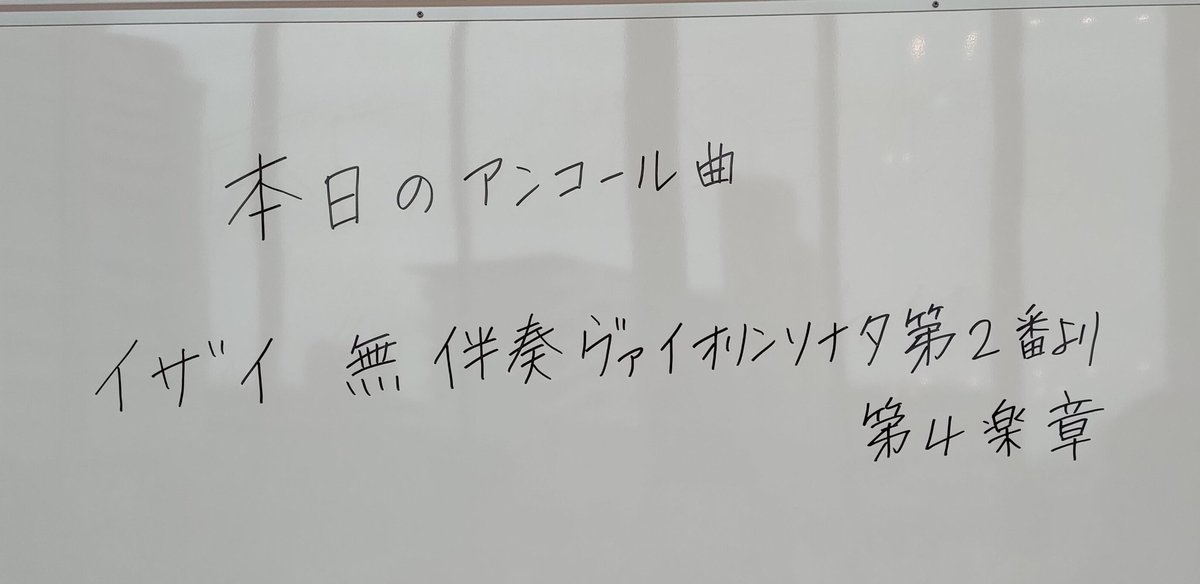 本日のアンコール曲
イザイ 無伴奏ヴァイオリンソナタ第2番より
第4楽章